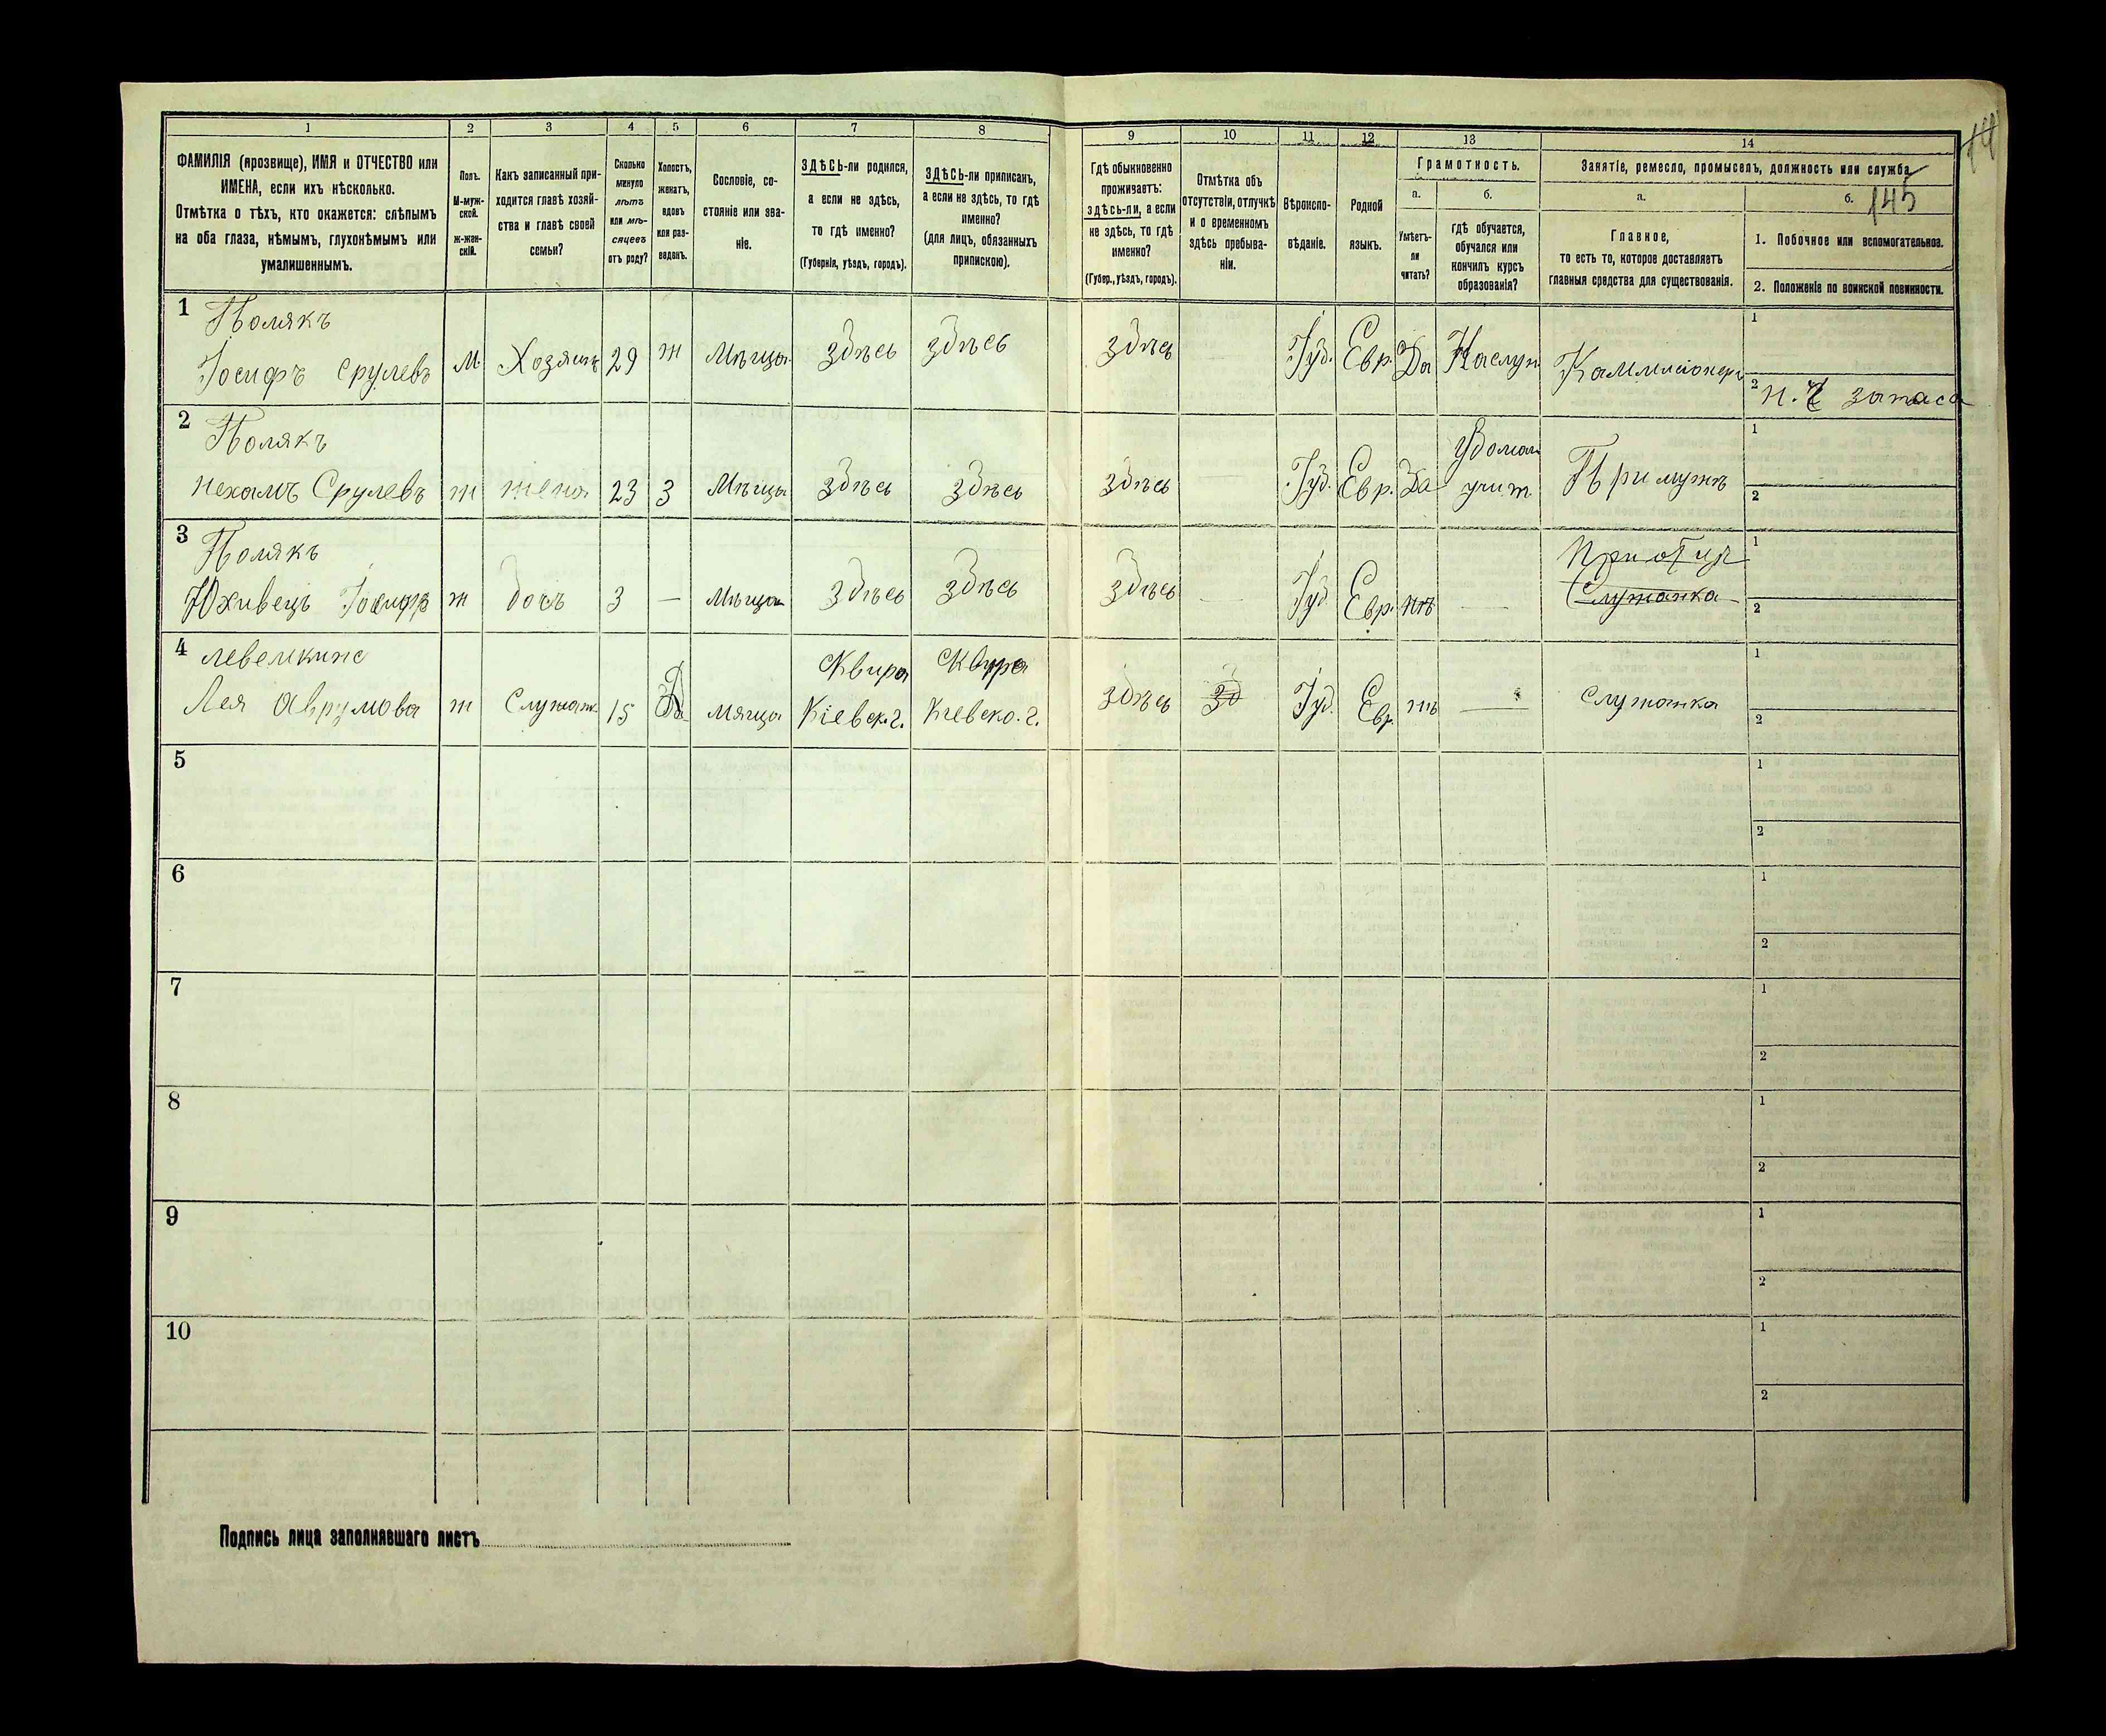 14
145
1
2
3
4
5
6
7
8
9
10
11
12
13
14
ФАМИЛІЯ (прозвище), ИМЯ и ОТЧЕСТВО или
ИМЕНА, если ихъ нѣсколько.
Отмѣтка о тѣхъ, кто окажется: слѣпымъ
на оба глаза, нѣмымъ, глухонѣмымъ или
умалишеннымъ.
Полъ.
М-муж-
ской.
ж-жен-
скій.
Какъ записанный при-
ходится главѣ хозяй-
ства и главѣ своей
семьи?
Сколько
минуло
лѣтъ
или мѣ-
сяцевъ
отъ роду?
Холостъ,
женатъ,
вдовъ
или раз-
веденъ.
Сословіе, со-
стояніе или зва-
ніе.
ЗДѢСЬ-ли родился,
а если не здѣсь,
то гдѣ именно?
(Губернія, уѣздъ, городъ).
ЗДѢСЬ-ли приписанъ,
а если не здѣсь, то гдѣ
именно?
(для лицъ, обязанныхъ
припискою).
Гдѣ обыкновенно
проживаетъ:
здѣсь-ли, а если
не здѣсь, то гдѣ
именно?
(Губер., уѣздъ, городъ).
Отмѣтка объ
отсутствіи, отлучкѣ
и о временномъ
здѣсь пребыва-
ніи.
Вѣроиспо-
вѣданіе.
Родной
языкъ.
Грамотность.
а.
Умѣетъ-
ли
читать?
б.
гдѣ обучается,
обучался или
кончилъ курсъ
образованія?
Занятіе, ремесло, промыселъ, должность или служба
а.
Главное,
то есть то, которое доставляетъ
главныя средства для существованія.
б.
1. Побочное или вспомогательное.
2. Положеніе по воинской повинности.
1 Полякъ
Іосифъ Срулевъ М. Хозяинъ 29 ж Мѣща. здѣсь здѣсь здѣсь Іуд. Евр. Да Каммисіонеръ
1
2 запаса
2 Полякъ
Нехамъ Срулевъ ж жена 23 З Мѣща здѣсь здѣсь здѣсь Іуд. Евр. Да Удома учит При мужѣ
1
2
3 Полякъ
Юхивець Іосифъ ж дочь 3 — Мѣща здѣсь здѣсь здѣсь — Іуд. Евр. нѣ — При отцѣ
Служанка
1
2
4 Левемкине
Лея Аврумова ж Служан 15 мяща Сквира Кіевск. г. Сквира Кіевско. г. здѣсь зд Іуд. Евр. нѣ — служанка
1
2
5
1
2
6
1
2
7
1
2
8
1
2
9
1
2
10
1
2
Подпись лица заполнявшаго листъ